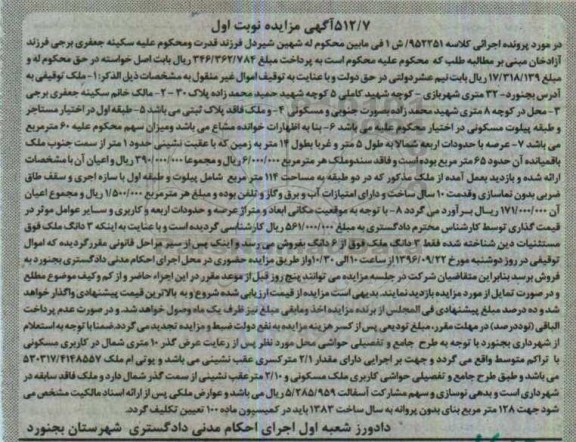 ۵۱۲/۷آگهی مزایده نوبت اول
در مورد پرونده اجرائی کلاسه ۹۵۲۲۵۱/ ش ۱ فی مابین محکوم له شهین شیردل فرزند قدرت ومحکوم علیه سکینه جعفری برجی فرزند
آزادخان مبنی بر مطالبه طلب که محکوم علیه محکوم است به پرداخت مبلغ ۳۴۶/۳۶۲/۷۸۴ ریال بابت اصل خواسته در حق محکوم له و
مبلغ ۱۷/۳۱۸/۱۳۹ ریال بابت نیم عشر دولتی در حق دولت و با عنایت به توقیف اموال غیر منقول به مشخصات ذیل الذکر: ۱- ملک توقیفی به
آدرس بجنورد- ۳۲ متری شهربازی - کوچه شهید کاملی ۵ کوچه شهید حمید محمد زاده پلاک ۳۰ - ۲- مالک خانم سکینه جعفری برجی
۳- محل در کوچه ۸ متری شهید محمد زاده بصورت جنوبی و مسکونی ۴- و ملک فاقد پلاک ثبتی می باشد ۵- طبقه اول در اختیار مستاجر
و طبقه پیلوت مسکونی در اختیار محکوم علیه می باشد ۶- بنا به اظهارات خوانده مشاع می باشد ومیزان سهم محکوم علیه ۶۰ مترمربع
می باشد ۷- عرصه با حدودات اربعه شمالا به طول ۵ متر و غربا بطول ۱۴ متر به زمین که با عقبت نشینی حدود ۱ متر از سمت جنوب ملک
باقیمانده آن حدود ۶۵ متر مربع بوده است و فاقد سندوملک هر مترمربع ۶/۰۰۰/۰۰۰ ریال و مجموعا ۳۹۰/۰۰۰/۰۰۰ ریال و اعیان آن با مشخصات
ارائه شده و بازدید بعمل آمده از ملک مذکور که در دو طبقه به مساحت ۱۱۴ متر مربع شامل پیلوت و طبقه اول با سازه اجری و سقف طاق
ضربی بدون نماسازی وقدمت ۱۰ سال ساخت و دارای امتیازات آب و برق وگاز و تلفن بوده و مبلغ هر مترمربع ۱/۵۰۰/۰۰۰ ریال و مجموع اعیان
آن ۱۷۱/۰۰۰/۰۰۰ ریال بر آورد می گردد ۸- با توجه به موقعیت مکانی ابعاد و متراژ عرصه و حدودات اربعه و کاربری و سایر عوامل موثر در
قیمت گذاری توسط کارشناس محترم دادگستری به مبلغ ۵۶۱/۰۰۰/۰۰۰ ریال کارشناسی گردیده است و با عنایت به اینکه ۳ دانگ ملک فوق
مستثنیات دین شناخته شده فقط ۳ دانگ ملک فوق از ۶ دانگ بفروش می رسد و اینک پس از سیر مراحل قانونی مقرر گردیده که اموال
توقیفی در روز دوشنبه مورخ ۱۳۹۶/۰۹/۲۲ از ساعت ۱۰ الی ۱۰/۳۰ واز طریق مزایده حضوری در محل اجرای احکام مدنی دادگستری بجنورد به
فروش برسد بنابراین متقاضیان شرکت در جلسه مزایده می توانند پنج روز قبل از موعد مقرر در این اجراء حاضر و از کم وکیف موضوع مطلع
و در صورت تمایل از مورد مزایده بازدید نمایند. بدیهی است مزایده از قیمت ارزیابی شده شروع و به بالاترین قیمت پیشنهادی واگذار خواهد
شد و ده درصد مبلغ پیشنهادی فی المجلس از برنده مزایده اخذ ومابقی مبلغ نیز ظرف یک ماه وصول خواهد شد. و در صورت عدم پرداخت
الباقی (نوددرصد) در مهلت مقرر، مبلغ تودیعی پس از کسر هزینه مزایده به نفع دولت ضبط و مزایده تجدید می گردد. ضمنا با توجه به استعلام
از شهرداری بجنورد با توجه به طرح جامع و تفصیلی حواشی محل مورد نظر پس از رعایت عرض گذر ۱۰ متری شمال در کاربری مسکونی
با تراکم متوسط واقع می گردد و جهت بر اجرایی دارای مقدار ۲/۱ مترکسری عقب نشینی می باشد و یوتی ام ملک ۵۳۰۳۱۷/۴۱۴۸۵۵۷
می باشد و طبق طرح جامع و تفصیلی حواشی کاربری ملک مسکونی و ۲/۱۰ متر عقب نشینی از سمت گذر شمال دارد و ملک فاقد سابقه در
شهرداری است و بدهی نوسازی و سهم مشارکت آسفالت ۵/۲۸۵/۹۵۹ ریال می باشد و عوارض ملکی پس از ارائه اسناد مالکیت مشخص می
شود جهت ۱۲۸ متر مربع بنای بدون پروانه به سال ساخت ۱۳۸۳ باید در کمیسیون ماده ۱۰۰ تعیین تکلیف گردد.
دادورز شعبه اول اجرای احکام مدنی دادگستری شهرستان بجنورد